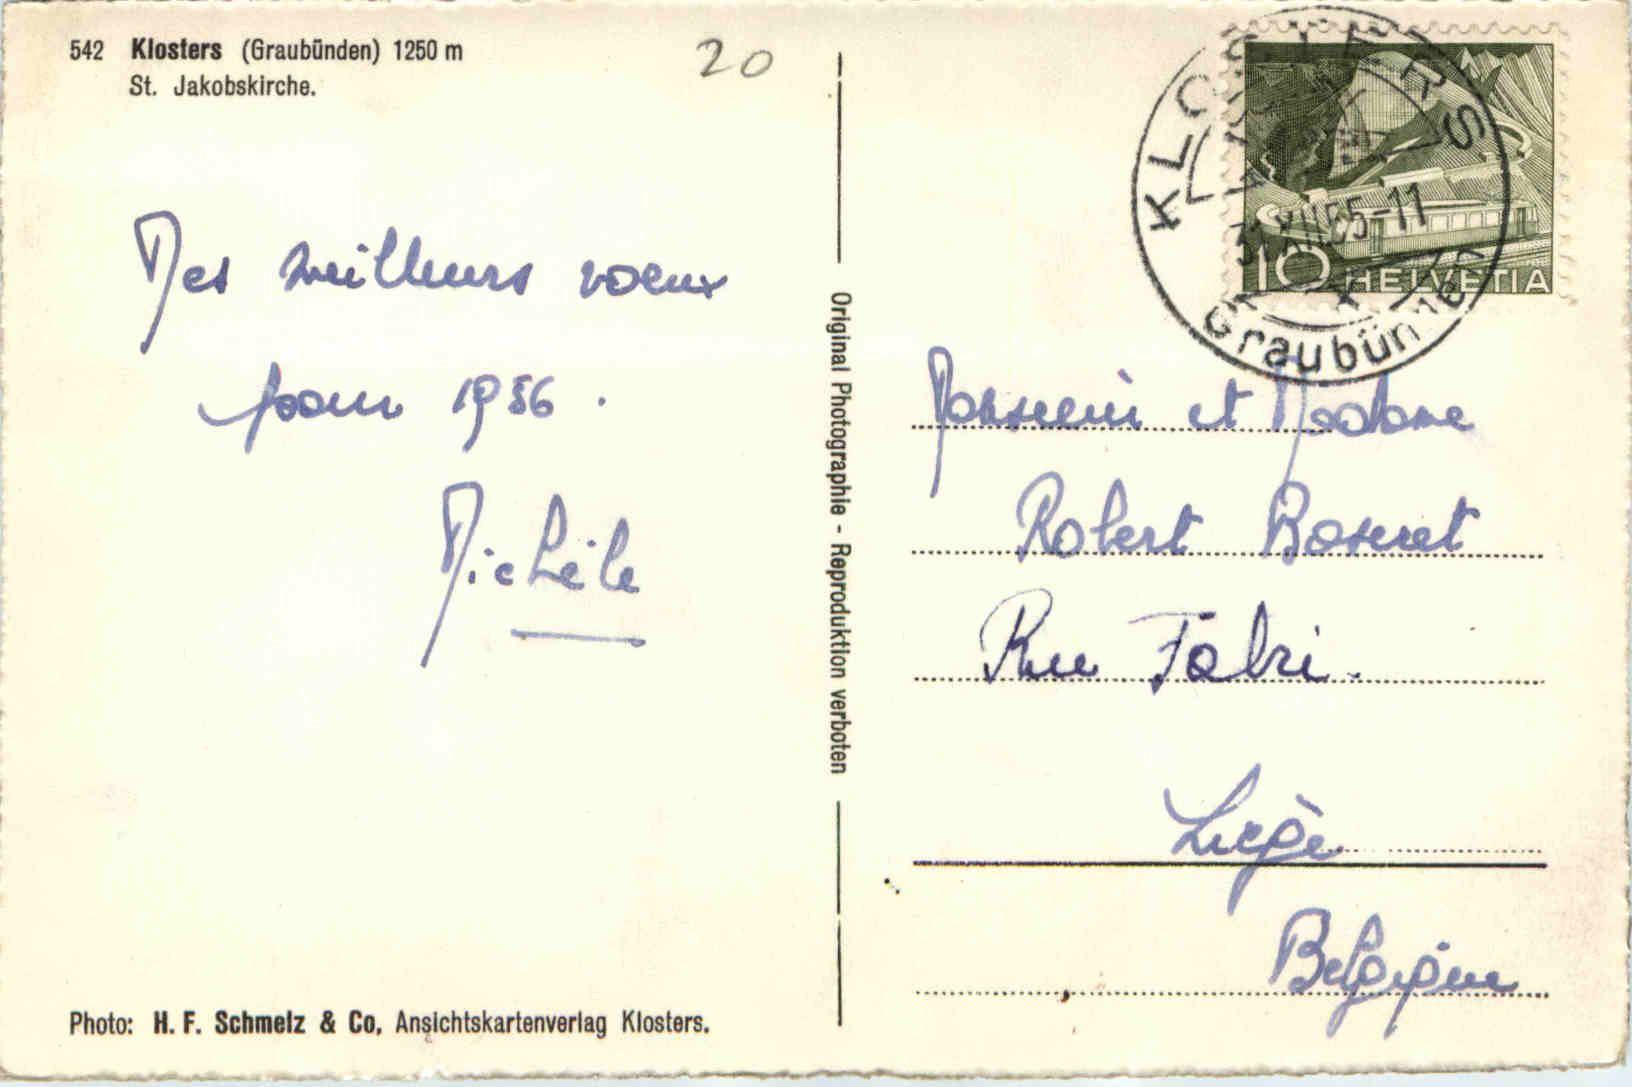 542 Klosters (Graubünden) 1250 m
St. Jakobskirche.
20
Mes meilleurs voeux
pour 1956.
Michèle
Photo: H. F. Schmelz & Co, Ansichtskartenverlag Klosters.
Original Photographie - Reproduktion verboten
KLOSTERS
31.XII.55-11
Graubünden
10 HELVETIA
Monsieur et Madame
Robert
Rue Fabri.
Liège
Belgique